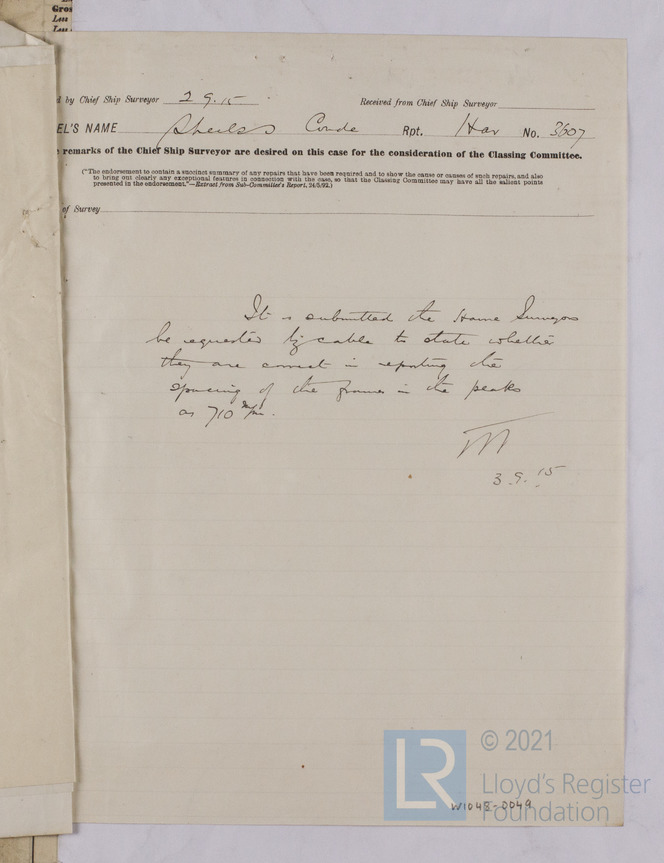 Gros
Less
Less
d by Chief Ship Surveyor 2.9.15 Received from Chief Ship Surveyor
EL'S NAME Conde Rpt. Hav No. 3607
remarks of the Chief Ship Surveyor are desired on this case for the consideration of the Classing Committee.
("The endorsement to contain a succinct summary of any repairs that have been required and to show the cause or causes of such repairs, and also
to bring out clearly any exceptional features in connection with the case, so that the Classing Committee may have all the salient points
presented in the endorsement."—Extract from Sub-Committee's Report, 24/5/92.)
of Survey
It is submitted the Havre Surveyors
be requested by cable to state whether
they are correct in reporting the
spacing of the frames in the peaks
as 710 m/m.
3.9.15
LR
© 2021
Lloyd's Register
Foundation
W1048-0049